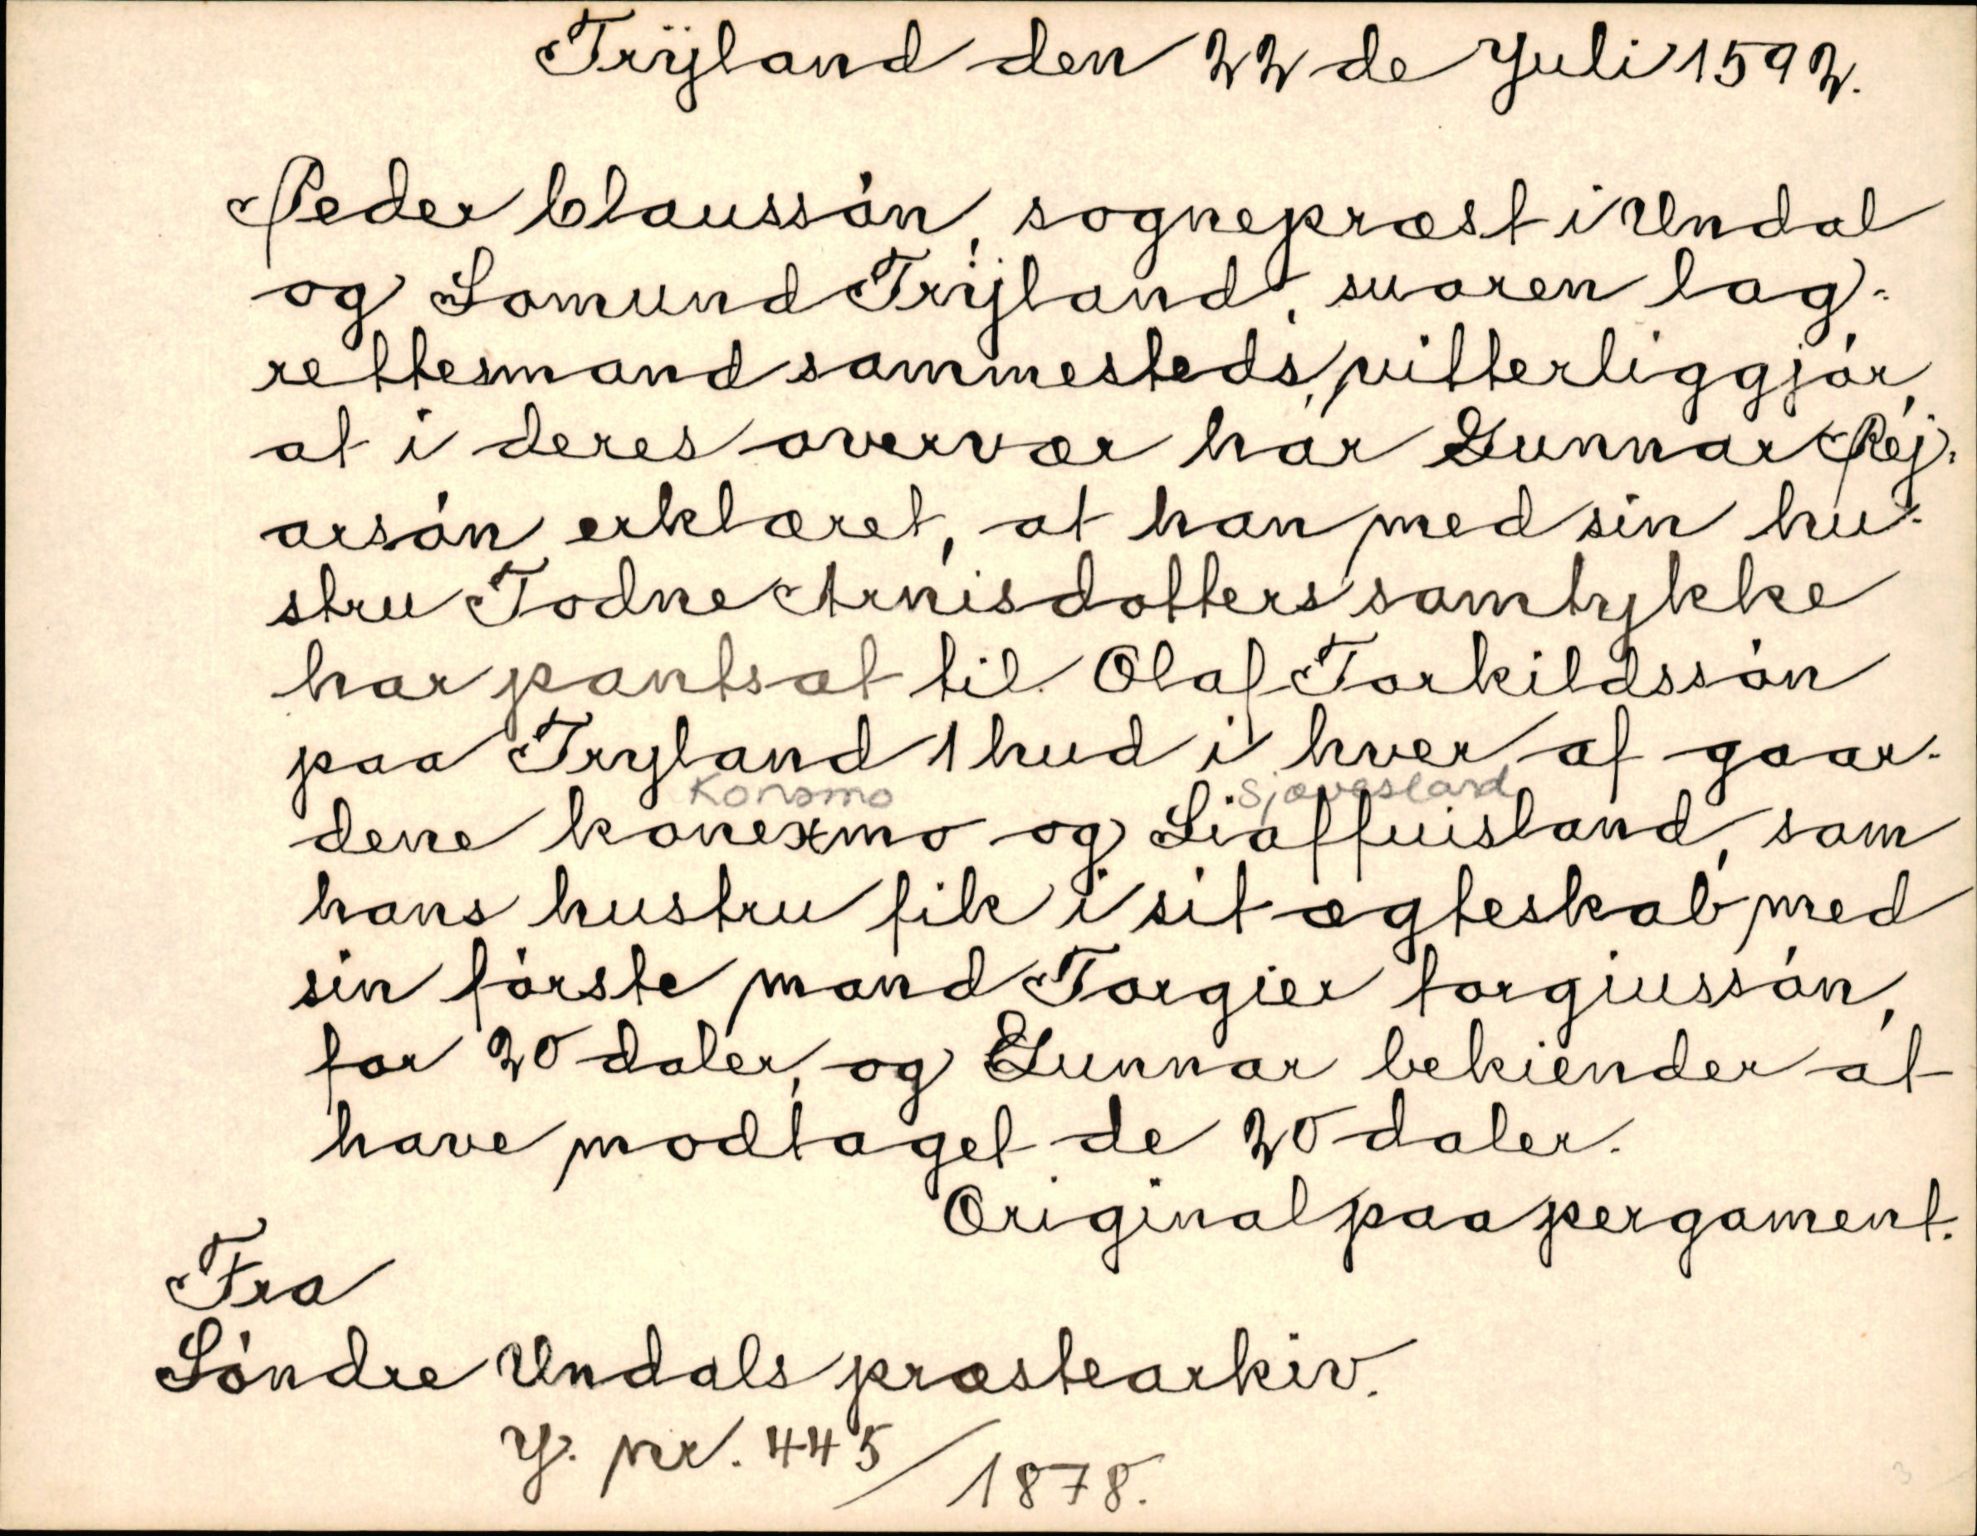 Trÿland den 22 de Juli 1592.
Peder Claussón, sognepræst i Undal
og Somund Trÿland, suoren lag-
rettesmand sammesteds, vitterliggjór,
at i deres overvær har Gunnar Rej-
arsón erklæret, at han med sin hu-
stru Todne Arnisdotters samtykke
har pantsat til Olaf Torkildssón
paa Tryland 1 hud i hver af gaar-
Konsmo Sjøvesland
dene konexmo og Siøffuisland, som
hans hustru fik i sit ægteskab med
sin fórste mand Torgier torgiussón,
for 20 daler, og Gunnar bekiender at
have modtaget de 20 daler.
Original paa pergament.
Fra
Sóndre Undals præstearkiv.
J. nr. 445/1878.
3